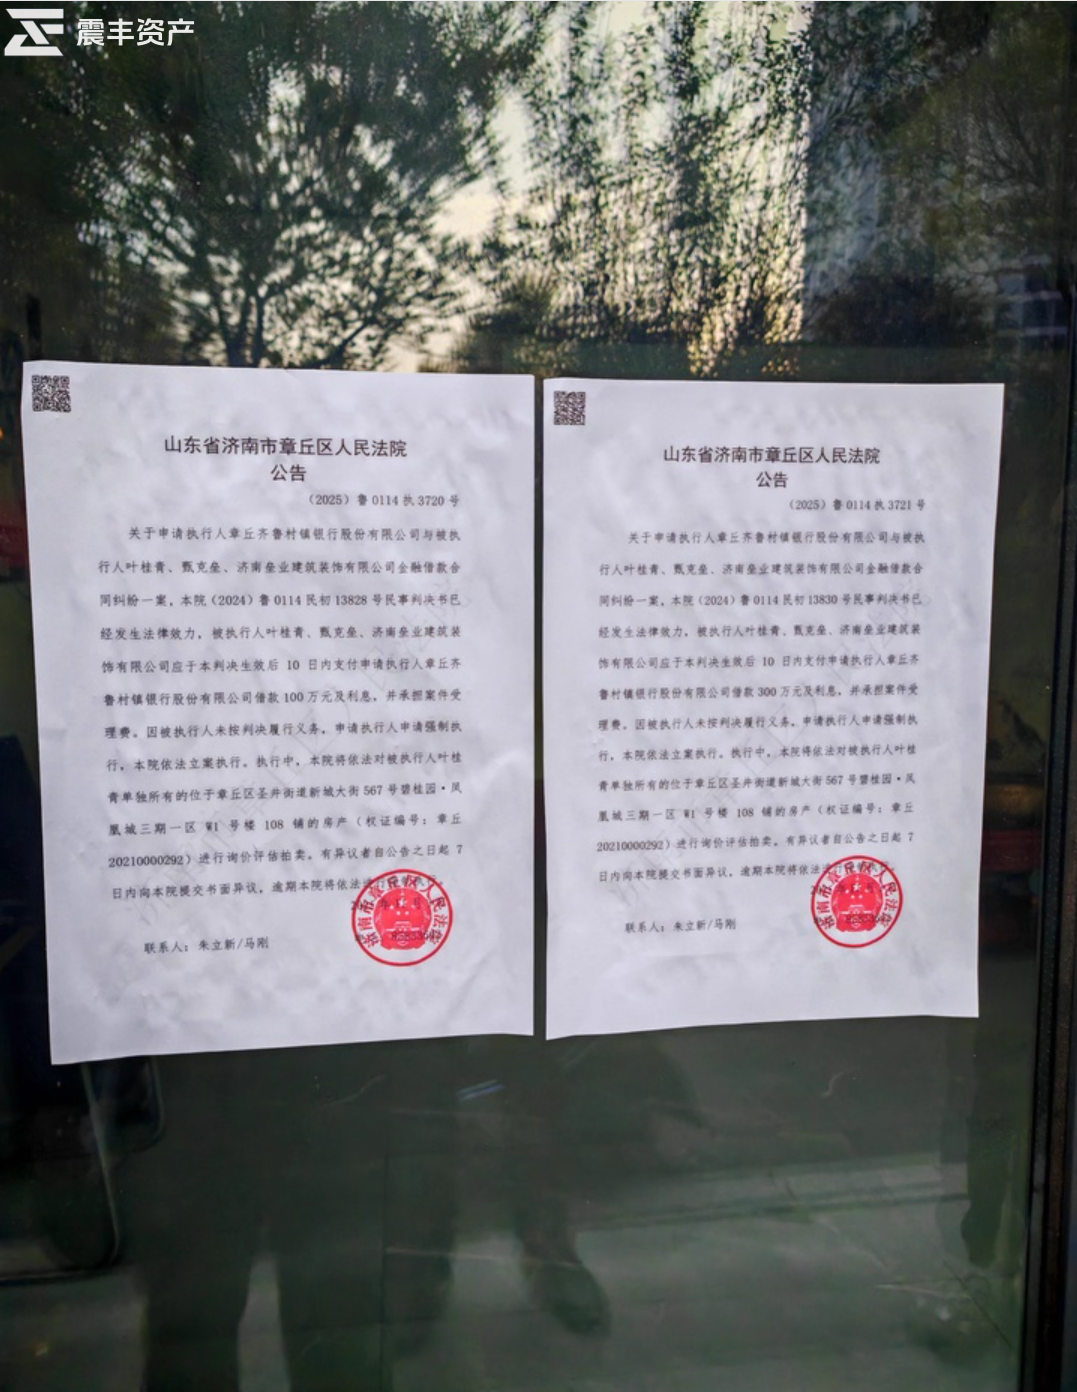 震丰资产
山东省济南市章丘区人民法院
公告
（2025）鲁 0114 执 3720 号
关于申请执行人章丘齐鲁村镇银行股份有限公司与被执
行人叶桂青、甄克垒、济南垒业建筑装饰有限公司金融借款合
同纠纷一案，本院（2024）鲁 0114 民初 13828 号民事判决书已
经发生法律效力，被执行人叶桂青、甄克垒、济南垒业建筑装
饰有限公司应于本判决生效后 10 日内支付申请执行人章丘齐
鲁村镇银行股份有限公司借款 100 万元及利息，并承担案件受
理费。因被执行人未按判决履行义务，申请执行人申请强制执
行，本院依法立案执行。执行中，本院将依法对被执行人叶桂
青单独所有的位于章丘区圣井街道新城大街 567 号碧桂园·凤
凰城三期一区 W1 号楼 108 铺的房产（权证编号：章丘
20210000292）进行询价评估拍卖。有异议者自公告之日起 7
日内向本院提交书面异议，逾期本院将依法
联系人：朱立新/马刚
山东省济南市章丘区人民法院
公告
（2025）鲁 0114 执 3721 号
关于申请执行人章丘齐鲁村镇银行股份有限公司与被执
行人叶桂青、甄克垒、济南垒业建筑装饰有限公司金融借款合
同纠纷一案，本院（2024）鲁 0114 民初 13830 号民事判决书已
经发生法律效力，被执行人叶桂青、甄克垒、济南垒业建筑装
饰有限公司应于本判决生效后 10 日内支付申请执行人章丘齐
鲁村镇银行股份有限公司借款 300 万元及利息，并承担案件受
理费。因被执行人未按判决履行义务，申请执行人申请强制执
行，本院依法立案执行。执行中，本院将依法对被执行人叶桂
青单独所有的位于章丘区圣井街道新城大街 567 号碧桂园·凤
凰城三期一区 W1 号楼 108 铺的房产（权证编号：章丘
20210000292）进行询价评估拍卖。有异议者自公告之日起 7
日内向本院提交书面异议，逾期本院将依法
联系人：朱立新/马刚